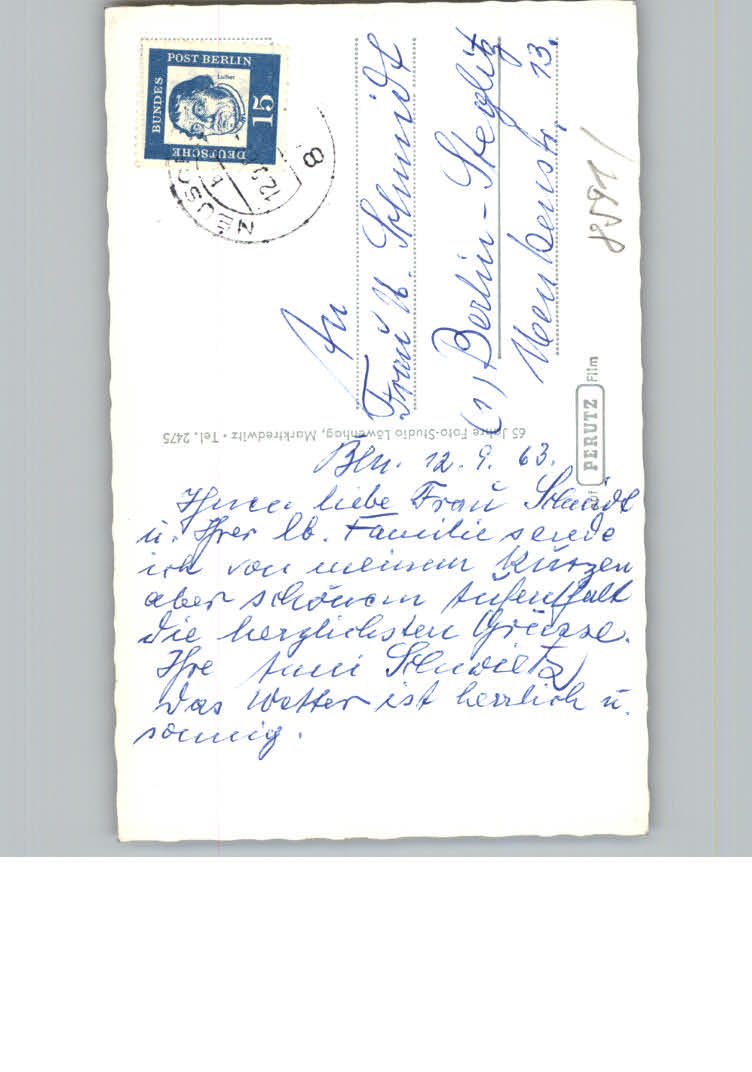 DEUTSCHE
BUNDES
POST BERLIN
15
Luther
8
12.9
NEUSO
An
Frau U. Schmidt
(1) Berlin-Steglitz
13.
8591/
65 Jahre Foto-Studio Löwenhag, Marktredwitz • Tel. 2475
auf PERUTZ Film
Bln. 12.9.63.
Ihnen liebe Frau Schmidt
u. Ihrer lb. Familie sende
ich von meinem kurzen
aber schönem Aufenthalt
die herzlichsten Grüsse.
Ihre Anni Schwietz
Das Wetter ist herrlich u.
sonnig.